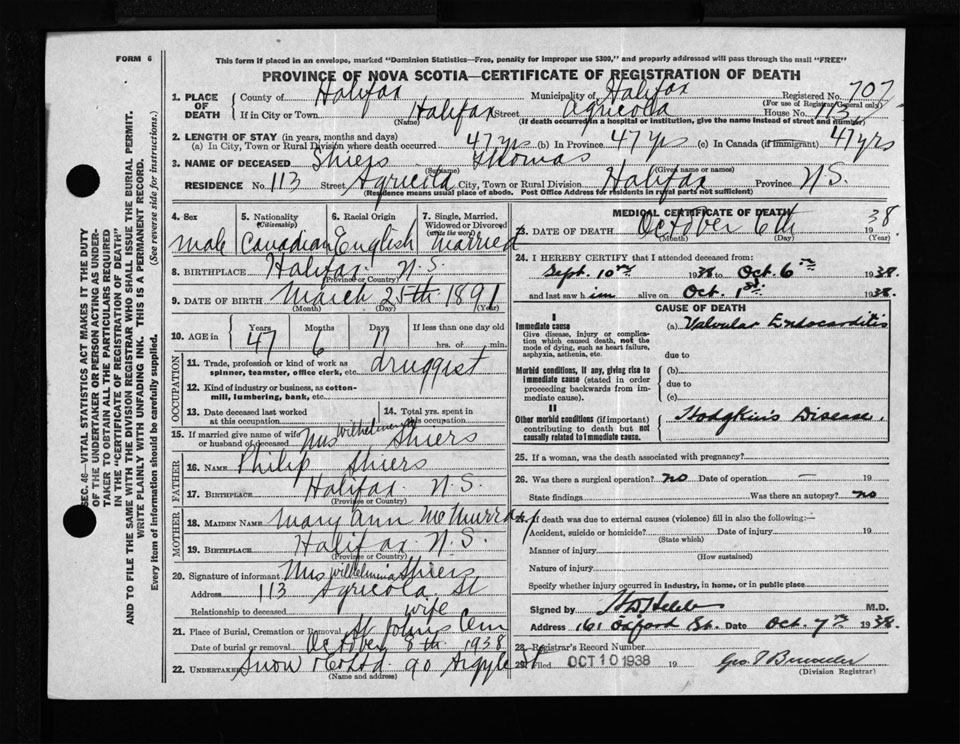 FORM 6
This form if placed in an envelope, marked "Dominion Statistics—Free, penalty for improper use $300," and properly addressed will pass through the mail "FREE"
PROVINCE OF NOVA SCOTIA—CERTIFICATE OF REGISTRATION OF DEATH
1. PLACE OF DEATH { County of Halifax Municipality of Halifax Registered No. 707
(For use of Registrar General only)
If in City or Town Halifax Street Agricola House No. 113
(Name) (If death occurred in a hospital or institution, give the name instead of street and number)
2. LENGTH OF STAY (in years, months and days)
(a) In City, Town or Rural Division where death occurred 47 yrs (b) In Province 47 yrs (c) In Canada (if immigrant) 47 yrs
3. NAME OF DECEASED Shiers Thomas
(Surname) (Given name or names)
RESIDENCE No. 113 Street Agricola City, Town or Rural Division Halifax Province N.S.
(Residence means usual place of abode. Post Office Address for residents in rural parts not sufficient)
4. Sex 5. Nationality (Citizenship) 6. Racial Origin 7. Single, Married, Widowed or Divorced (write the word)
male Canadian English married
8. BIRTHPLACE Halifax N.S.
(Province or Country)
9. DATE OF BIRTH March 25th 1891
(Month) (Day) (Year)
10. AGE in { Years 47 Months 6 Days 11 If less than one day old hrs. or min.
OCCUPATION
11. Trade, profession or kind of work as spinner, teamster, office clerk, etc. druggist
12. Kind of industry or business, as cotton-mill, lumbering, bank, etc.
13. Date deceased last worked at this occupation 14. Total yrs. spent in this occupation
15. If married give name of wife or husband of deceased Mrs Wilhelmena Shiers
FATHER
16. NAME Philip Shiers
17. BIRTHPLACE Halifax N.S.
(Province or Country)
MOTHER
18. MAIDEN NAME Mary Ann McMurray
19. BIRTHPLACE Halifax N.S.
(Province or Country)
20. Signature of informant Mrs Wilhelmina Shiers
Address 113 Agricola St
Relationship to deceased wife
21. Place of Burial, Cremation or Removal St Johns Cem
Date of burial or removal October 8th 1938
22. UNDERTAKER Snow & Co Ltd 90 Argyle St
(Name and address)
MEDICAL CERTIFICATE OF DEATH
23. DATE OF DEATH October 6th 1938
(Month) (Day) (Year)
24. I HEREBY CERTIFY that I attended deceased from:
Sept. 10th 1938 to Oct. 6th 1938.
and last saw him alive on Oct. 1st 1938.
CAUSE OF DEATH
I
Immediate cause (a) Valvular Endocarditis
Give disease, injury or complication which caused death, not the mode of dying, such as heart failure, asphyxia, asthenia, etc.
due to
Morbid conditions, if any, giving rise to immediate cause (stated in order proceeding backwards from immediate cause). (b)
due to
(c)
II
Other morbid conditions (if important) contributing to death but not causally related to immediate cause. Hodgkin's Disease.
25. If a woman, was the death associated with pregnancy?
26. Was there a surgical operation? no Date of operation — 19
State findings Was there an autopsy? no
27. If death was due to external causes (violence) fill in also the following:—
Accident, suicide or homicide? Date of injury 19
(State which)
Manner of injury
(How sustained)
Nature of injury
Specify whether injury occurred in industry, in home, or in public place
Signed by M.D.
Address 161 Oxford St. Date Oct. 7th 1938.
28. Registrar's Record Number
29. Filed OCT 10 1938 19
(Division Registrar)
SEC. 46—VITAL STATISTICS ACT MAKES IT THE DUTY
OF THE UNDERTAKER OR PERSON ACTING AS UNDER-
TAKER TO OBTAIN ALL THE PARTICULARS REQUIRED
IN THE "CERTIFICATE OF REGISTRATION OF DEATH"
AND TO FILE THE SAME WITH THE DIVISION REGISTRAR WHO SHALL ISSUE THE BURIAL PERMIT.
WRITE PLAINLY WITH UNFADING INK. THIS IS A PERMANENT RECORD.
Every item of information should be carefully supplied. (See reverse side for instructions.)